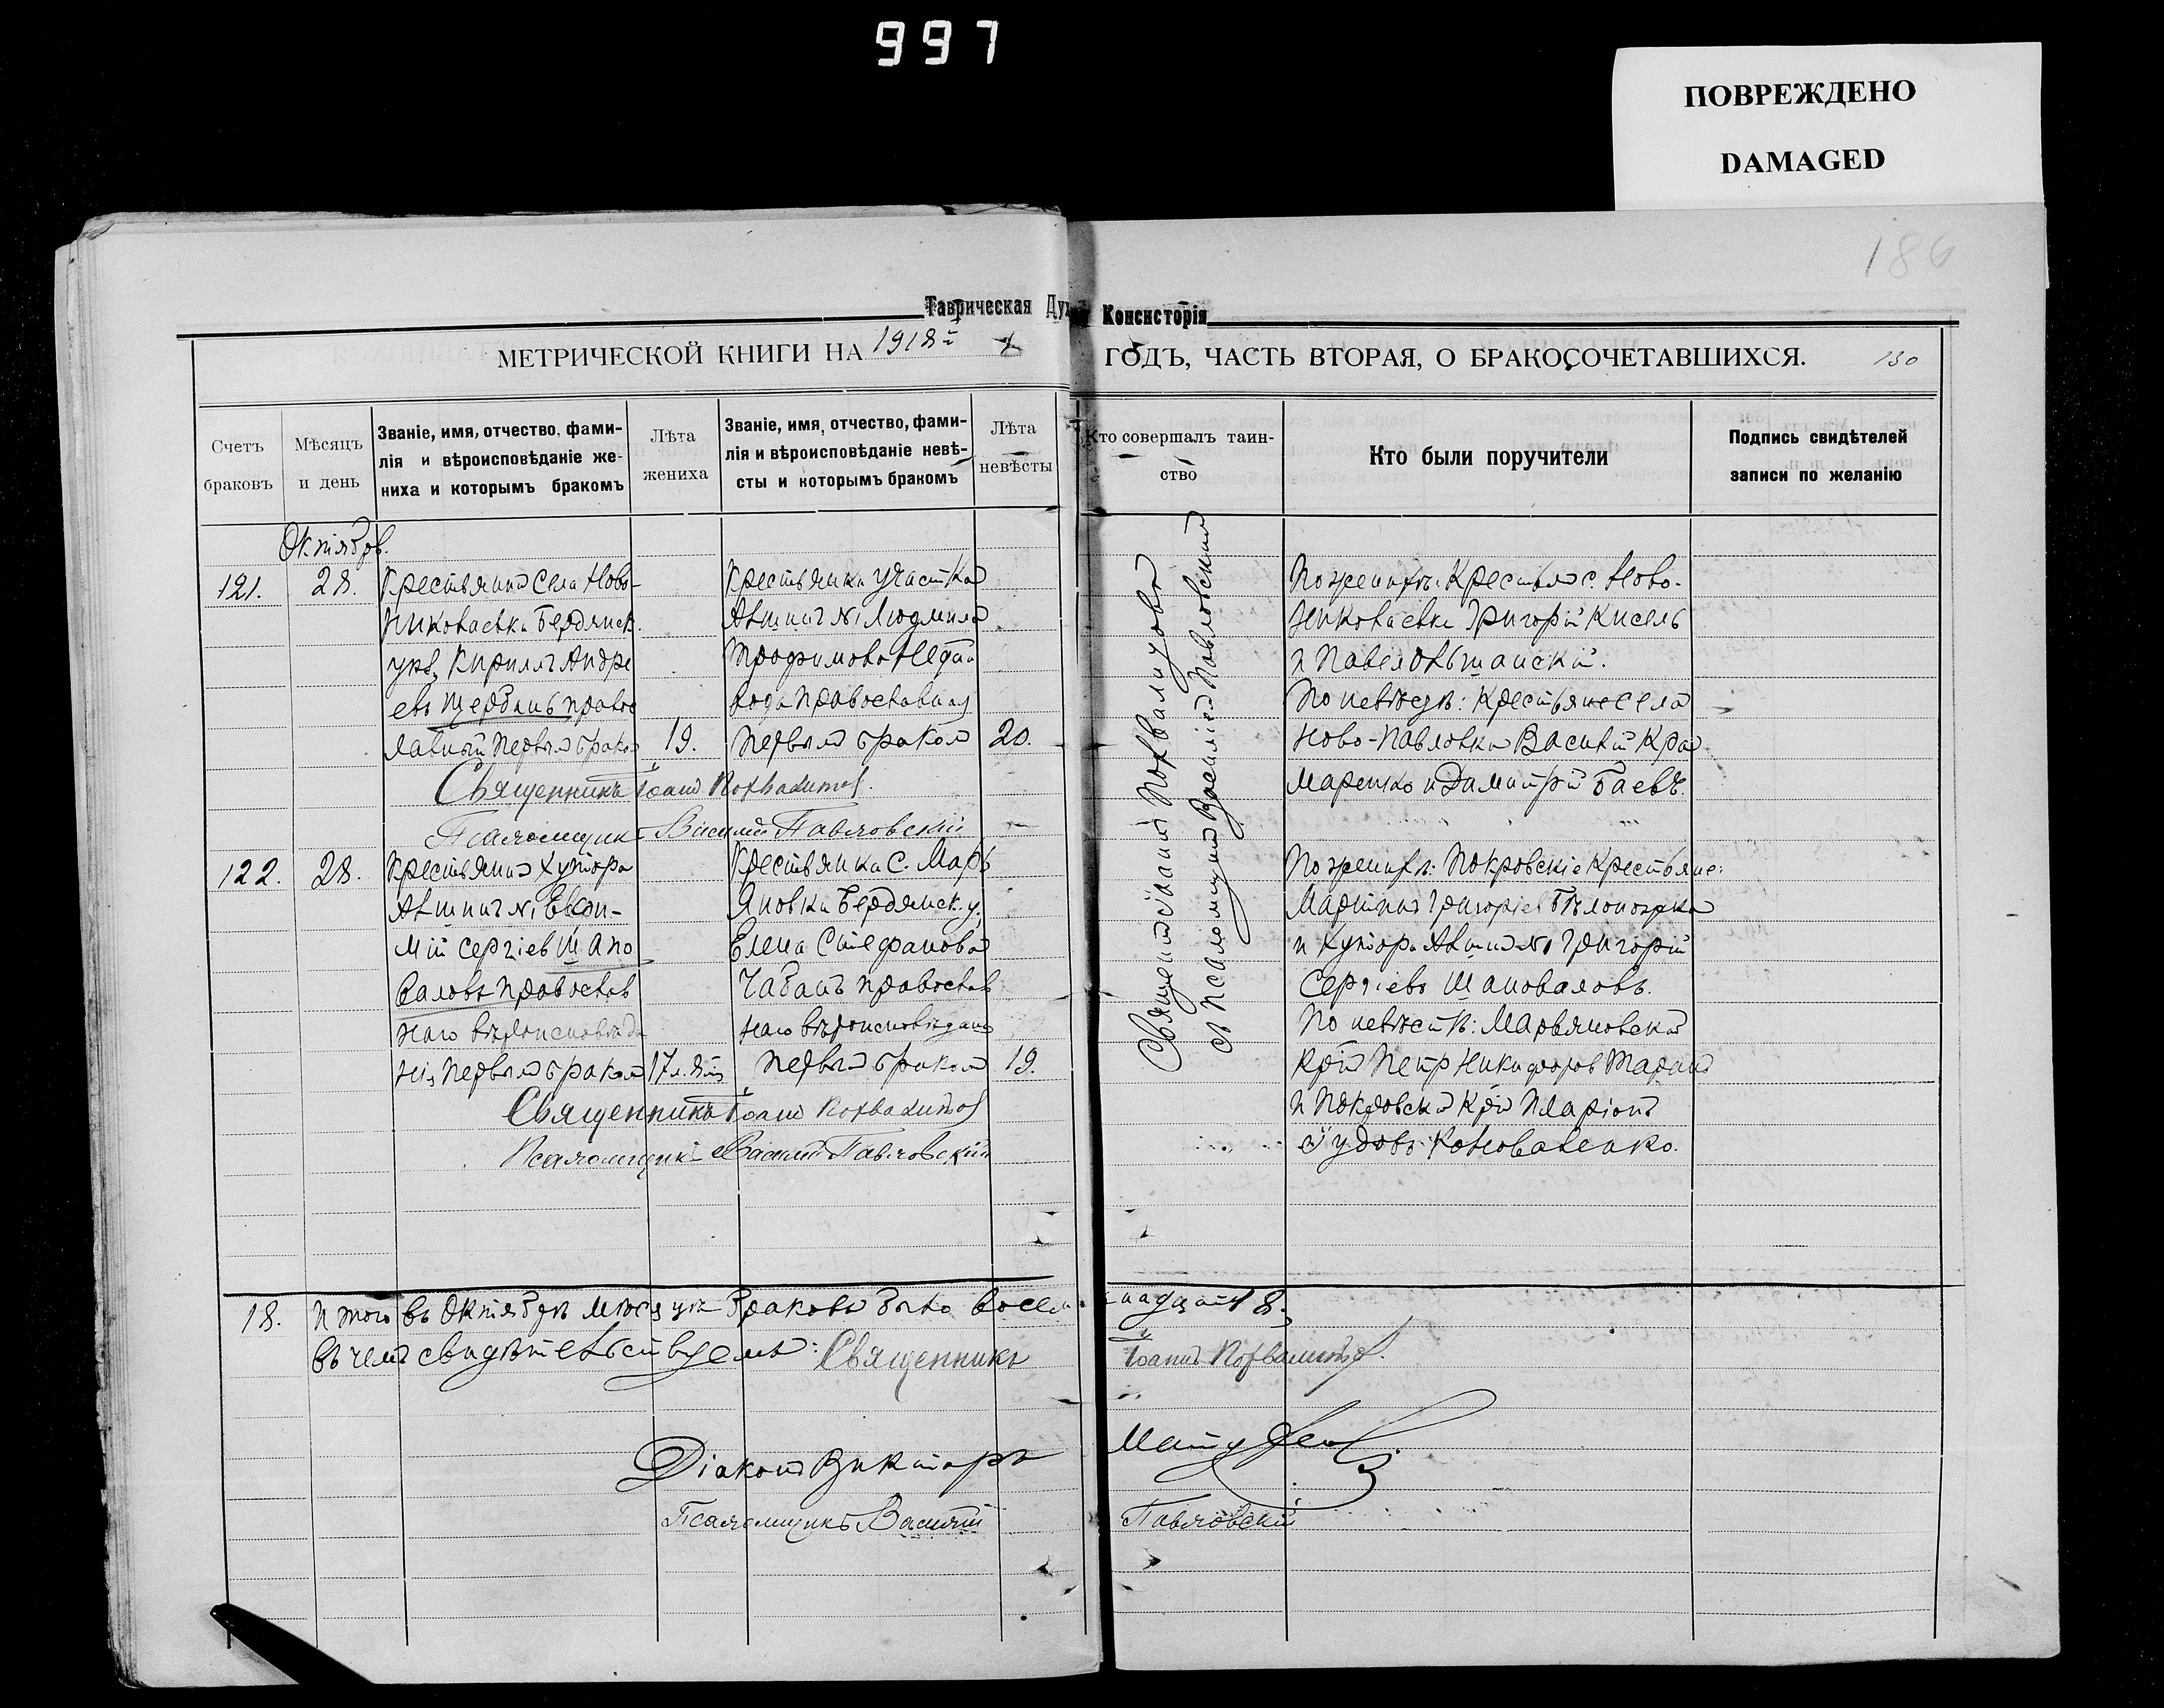 997
ПОВРЕЖДЕНО
DAMAGED
186
Таврическая Дух
Консисторія
МЕТРИЧЕСКОЙ КНИГИ НА 1918й
ГОДЪ, ЧАСТЬ ВТОРАЯ, О БРАКОСОЧЕТАВШИХСЯ.
130
Счетъ
браковъ
Мѣсяцъ
и день
Званіе, имя, отчество, фами-
лія и вѣроисповѣданіе же-
ниха и которымъ бракомъ
Лѣта
жениха
Званіе, имя, отчество, фами-
лія и вѣроисповѣданіе невѣ-
сты и которымъ бракомъ
Лѣта
невѣсты
Кто совершалъ таин-
ство
Кто были поручители
Подпись свидѣтелей
записи по желанію
Октябрь.
121.
28.
Крестьянин Села Ново-
николаевки Бердянск.
уѣз, Кириллъ Андре
евъ Щербань правос
лавный первым браком
19.
Крестьянка участка
Алтпич №1 Людмила
Трофимова
вода православная
первым браком
20.
Священникъ Іоанн Похвалитов.
Псаломщик Василий Павловскій
Священник Іоаннъ Похвалитовъ
съ Псаломщиком Василіем Павловским
По женихѣ: Крестьян с. Ново-
Николаевки Григорій Кисель
и Павел Ольшанский.
По невѣстѣ: Крестьяне села
Ново-Павловки Василий Кра
маренко и Димитрій Баевъ.
122.
28.
Крестьянин хутора
№1 Евфи-
мій Сергіев Шапо
валовъ православ
наго вѣроисповѣда
нія первым браком
Крестьянка с. Марь
яновки Бердянск. у.
Елена Стефанова
Чабанъ православ
наго вѣроисповѣдания
первым браком
19.
По женихѣ: Покровскіе Крестьяне:
Мартин Григоріев Бѣлоножко
и хутора №1 Григорій
Сергіевъ Шаповаловъ.
По невѣстѣ: Марьяновский
кр̄н Петр Никифоров Таран
и Покровский кр̄н Иларіонъ
Коноваленко.
Священникъ Іоанн Похвалитов
Псаломщик Василий Павловскій
18.
Итого въ Октябрѣ мѣсяцѣ браковъ было восем
надцать 18.
въ чемъ свидѣтельствуемъ: Священникъ
Іоаннъ Похвалитов.
Діаконъ Викторъ
Псаломщикъ Василій
Павловскій